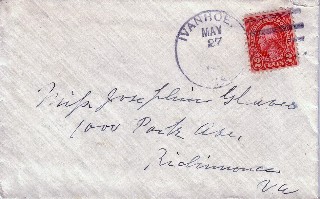 IVANHOE,
MAY
27
2 CENTS 2
Miss Josephine Glaves
1000 Park Ave,
Richmond
Va